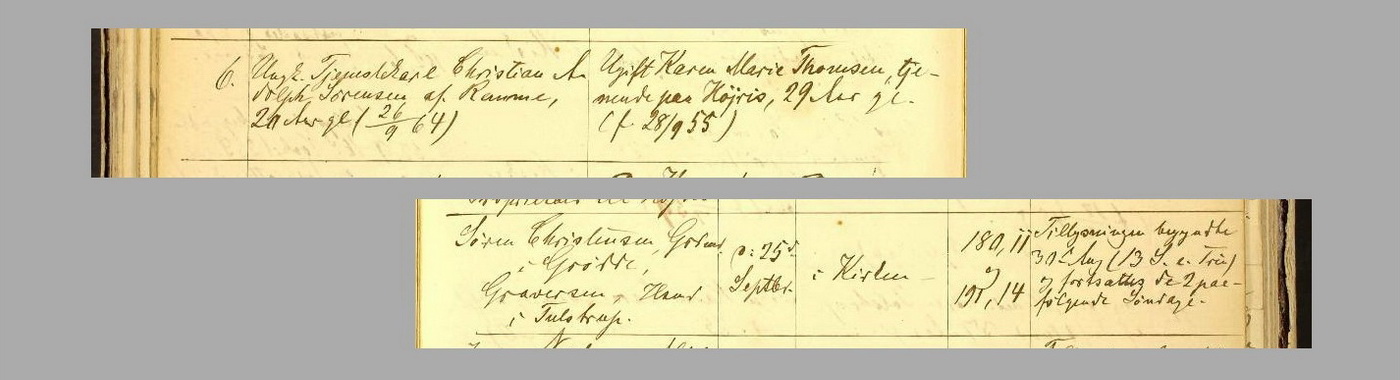 6. Ungk. Tjenestekarl Christian A-
dolph Sørensen af Ramme,
Aar gl ( 26/9 64)
Ugift Karen Marie Thomsen, tje-
nende paa Højris, 29 Aar gl.
(f 28/9 55)
Søren Christensen, Grdmd.
i Grødde,
Graversen, Hmd
i Tulstrup.
d: 25d
Septbr.
i Kirken
180, 11
og
195, 14
Tillysningen begyndte
30t Aug (13 S. e. Trin)
og fortsattes de 2 paa-
følgende Søndage.